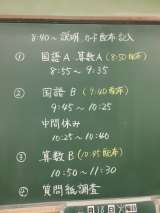 8:40～ 説明 カード配布 記入
① 国語A 算数A (8:50配布)
8:55 ～ 9:35
② 国語 B (9:40配布)
9:45 ～ 10:25
中間休み
10:25～10:40
③ 算数B (10:45配布)
10:50 ～ 11:30
④ 質問紙調査